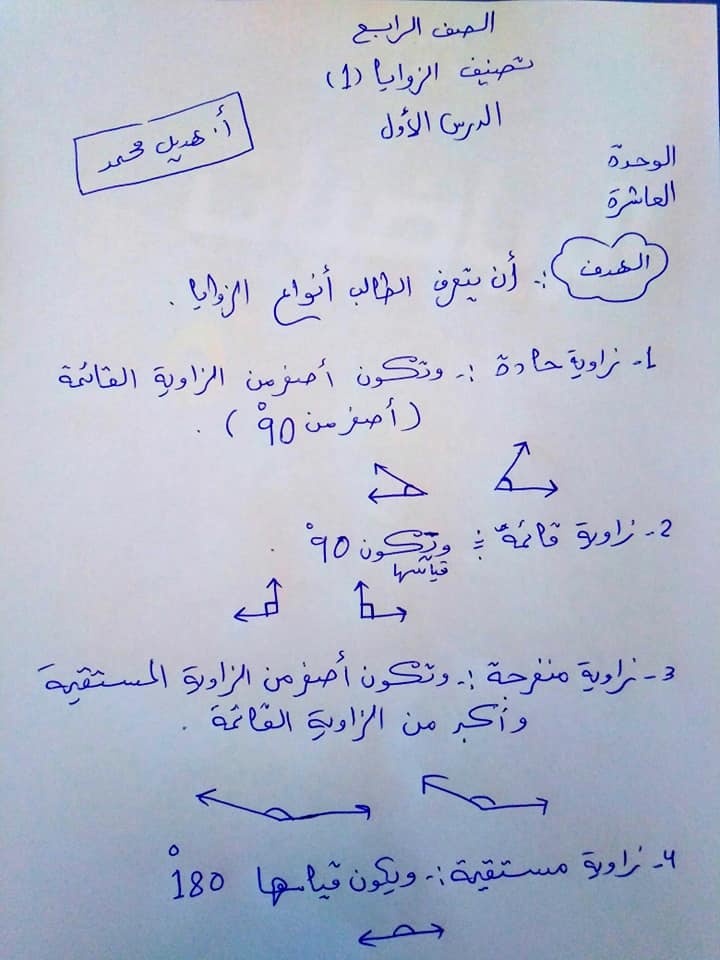 الصف الرابع
تصنيف الزوايا (1)
الدرس الأول
أ. هديل محمد
الوحدة
العاشرة
الهدف :- أن يتعرف الطالب أنواع الزوايا .
1- زاوية حادة :- وتكون أصغر من الزاوية القائمة
(أصغر من 90°) .
2- زاوية قائمة :- ويكون 90° .
قياسها
3- زاوية منفرجة :- وتكون أصغر من الزاوية المستقيمة
وأكبر من الزاوية القائمة .
4- زاوية مستقيمة :- ويكون قياسها 180°